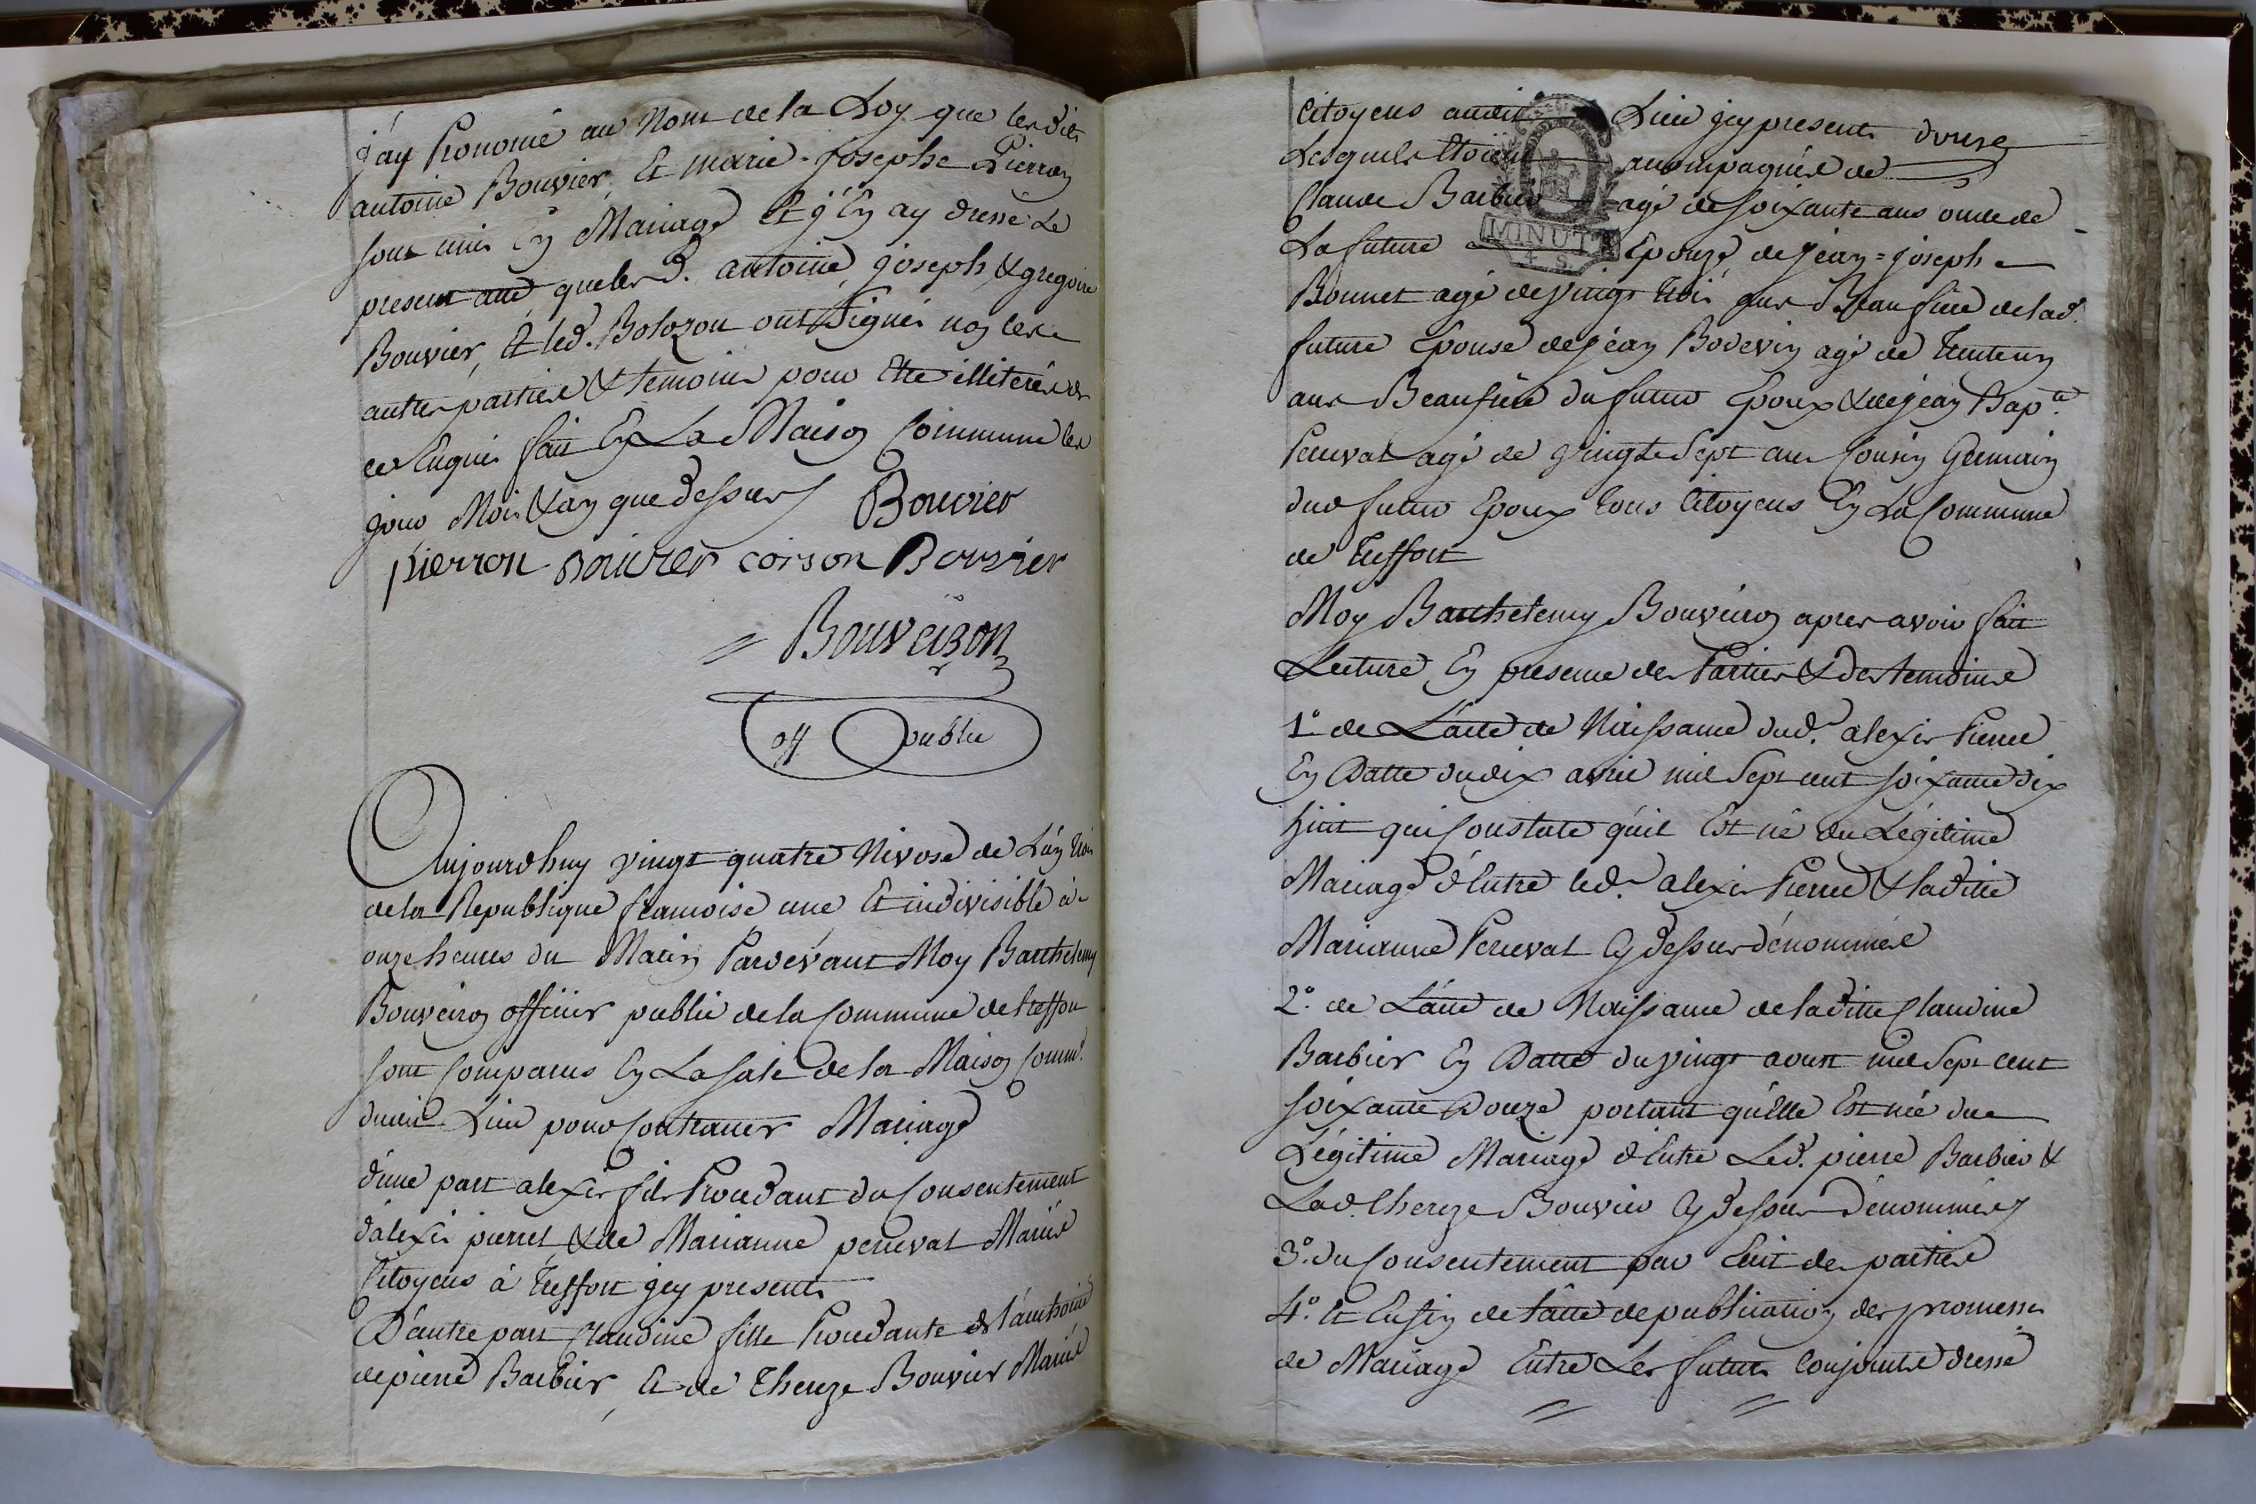 j'ay Prononcé au Nom de la Loy que lesdits
antoine Bouvier, Et marie-josephe Pierron
sont unis En Mariage Et j'En ay dressé Le
present acte que lesd. antoine, joseph, & gregoire
Bouvier, Et led. Bolozon ont Signés non les
autres parties & temoins pour Etre illiterés
ce Enquis fait En La Maison Commune les
jour Mois & an que dessus Bouvier
pierron Bouvier corson Bouvier
Bouveiron
off public
Aujourdhuy vingt quatre Nivose de L'an trois
de la Republique francoise une Et indivisible à
onze heures du Matin Pardevant Moy Barthelemy
Bouveiron officier public de la Commune de treffort
sont Comparus En La Sale de la Maison Comm.
dudit Lieu pour Contracter Mariage
d'une part alexis fils Procedant du Consentement
d'alexis pierret & de Marianne perceval Mariés
Citoyens à treffort jcy presents
D'autre part Claudine fille Procedante de l'authorité
de pierre Barbier, Et de Thereze Bouvier Mariés
Citoyens audit Lieu jcy presents
Lesquels Etoient accompagnés de
Claude Barbier agé de soixante ans oncle de
La future Epouze de jean=joseph
Bonnet agé de vingt trois ans Beaufrere de lad.
future Epouse de jean Bodevin agé de trente un
ans Beaufrere du futur Epoux & de jean Bapte.
Perceval agé de vingt Sept ans Cousin Germain
dud futur Epoux tous Citoyens En La Commune
de treffort
Moy Barthelemy Bouveiron apres avoir fait
Lecture En presence des Parties & des temoins
1º. de L'acte de Naissance dud. alexis Pierre
En Datte du dix avril mil Sept cent soixante dix
huit qui Constate qu'il Est né du Légitime
Mariage d'Entre led. alexis Pierre & ladite
Marianne Perceval Cy dessus dénommés
2º. de L'acte de Naissance de laditte Claudine
Barbier En Datte du vingt aoust mil Sept cent
soixante Douze portant qu'Elle Est née du
Légitime Mariage d'Entre Led. pierre Barbier &
Lad. Thereze Bouvier Cy dessus Dénommés
3º. du Consentement par Ecrit des parties
4º. Et Enfin de l'acte de publication des promesses
de Mariage Entre Les futurs Conjoints dressé